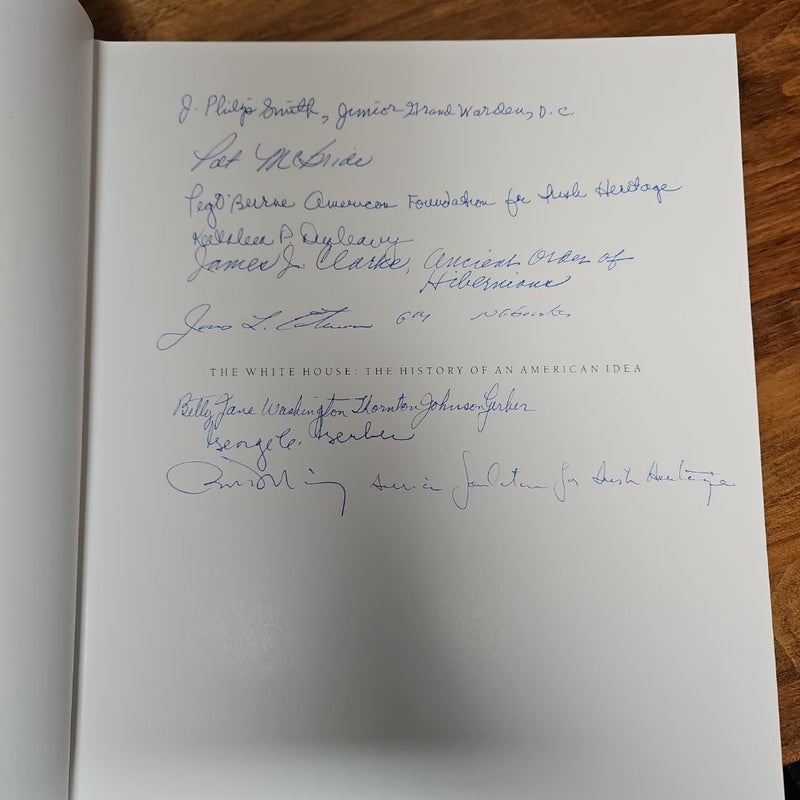 J. Philip Smith, Junior Grand Warden, D.C.
Pat McBride
Peg O'Beirne American Foundation for Irish Heritage
Kathleen P. Dunleavy
James J. Clarke, Ancient Order of
Hibernians
L.
THE WHITE HOUSE: THE HISTORY OF AN AMERICAN IDEA
Betty Jane Washington Thornton Johnson Gerber
George C. Gerber
American Foundation for Irish Heritage